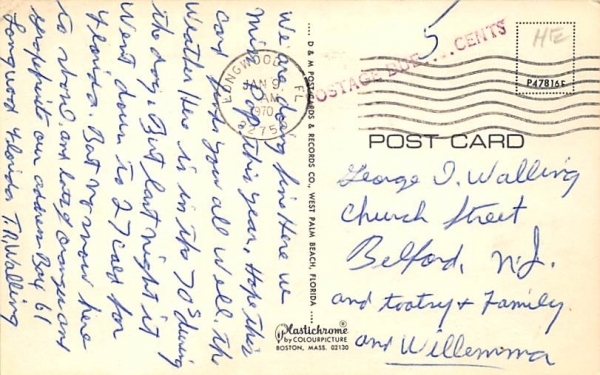 We are doing fine Here we
Miss you this year, Hope this
card finds you all well. the
Weather Here is in the 70s during
the day. But last night it
Went down to 27 cold for
Florida. But no snow here
to shovel and lots of oranges and
grapefruits our address Box 61
Longwood Florida T.R. Walling
D & M POST CARDS & RECORDS CO., WEST PALM BEACH, FLORIDA
LONGWOOD, FL
JAN 9
AM
1970
32750
POSTAGE DUE 5 CENTS
HE
P47816E
POST CARD
George I. Walling
Church Street
Belford, N.J.
and tootsy + Family
and Willemma
Plastichrome®
by COLOURPICTURE
BOSTON, MASS. 02130